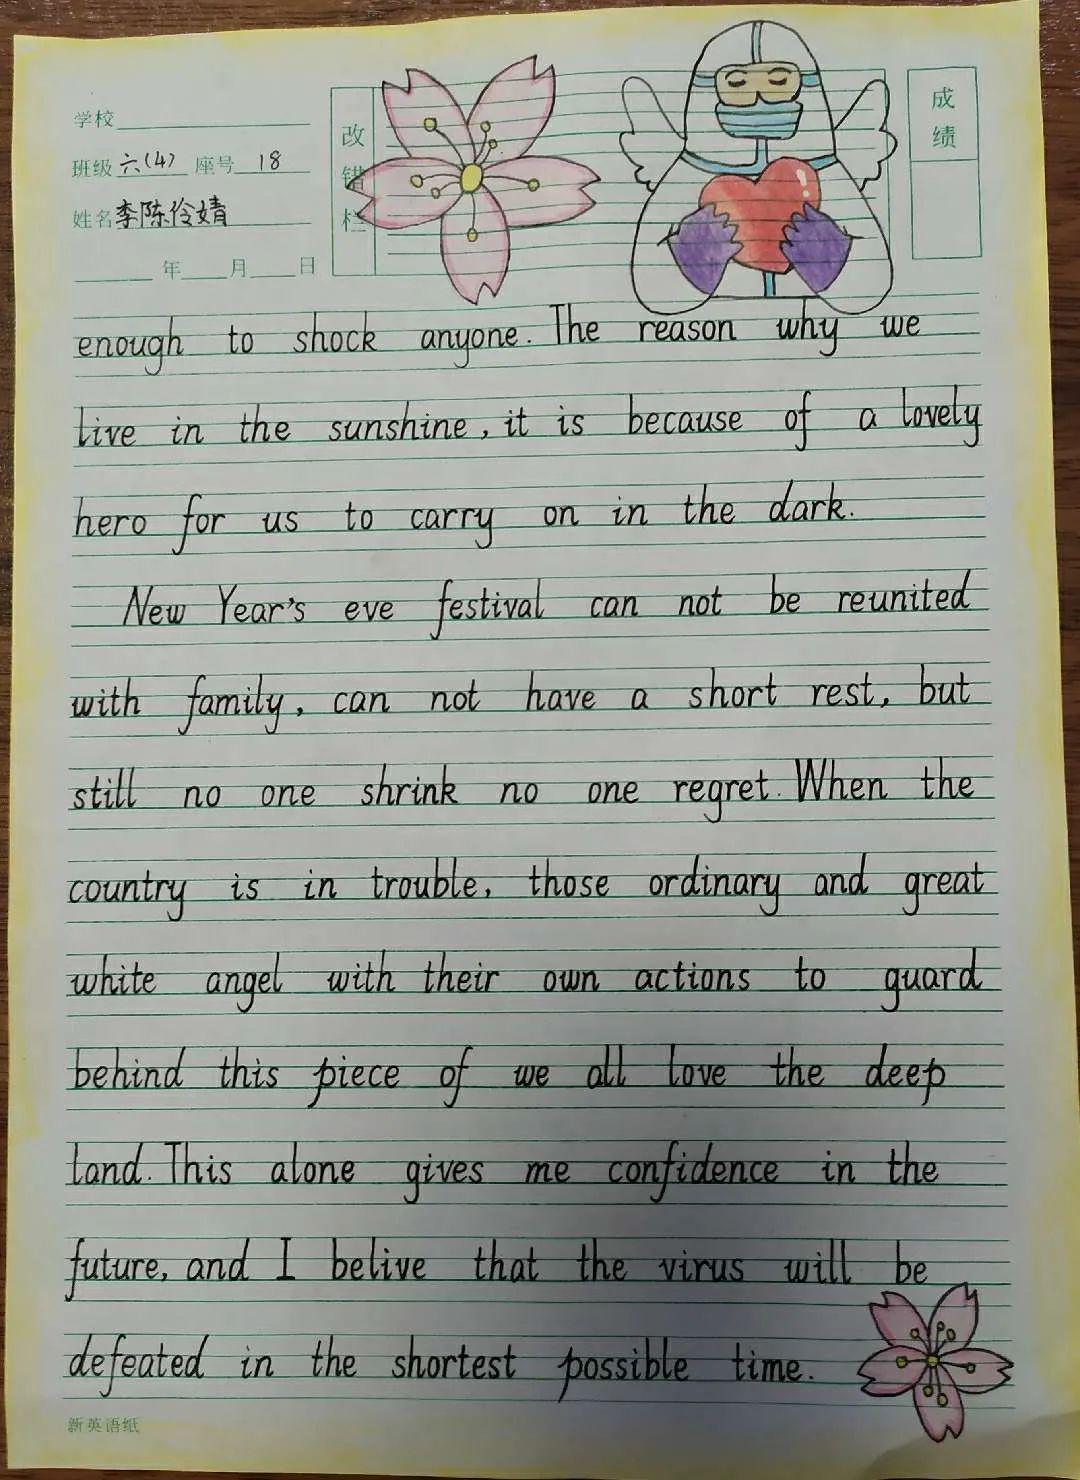 学校
班级 六(4) 座号 18
姓名 李陈伶婧
年 月 日
改错栏
成绩
enough to shock anyone. The reason why we
live in the sunshine, it is because of a lovely
hero for us to carry on in the dark.
New Year's eve festival can not be reunited
with family, can not have a short rest, but
still no one shrink no one regret. When the
country is in trouble, those ordinary and great
white angel with their own actions to guard
behind this piece of we all love the deep
land. This alone gives me confidence in the
future, and I belive that the virus will be
defeated in the shortest possible time.
新英语纸